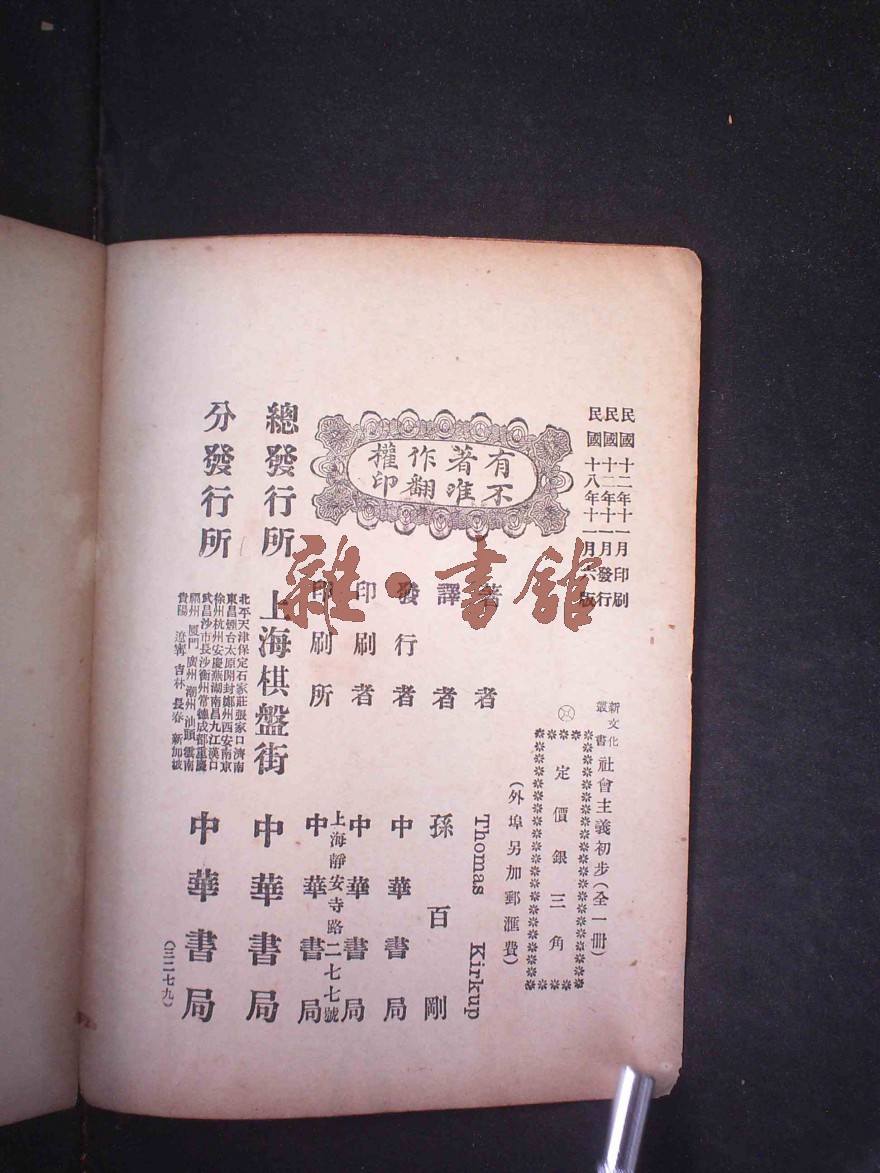 民國十二年十一月印刷
民國十二年十一月發行
民國十八年十一月六版
有著作權
不唯翻印
新文化叢書
社會主義初步(全一冊)
定價銀三角
(外埠另加郵滙費)
著者 Thomas Kirkup
譯者 孫百剛
發行者 中華書局
印刷者 中華書局
上海靜安寺路二七七號
印刷所 中華書局
總發行所 上海棋盤街 中華書局
分發行所 中華書局
北平天津保定石家莊張家口濟南
東昌煙台太原開封鄭州西安南京
徐州杭州安慶蕪湖南昌九江漢口
武昌沙市長沙衡州常德成都重慶
福州廈門廣州潮州汕頭雲南
貴陽遼寧吉林長春新加坡
(三二七九)
雜·書館